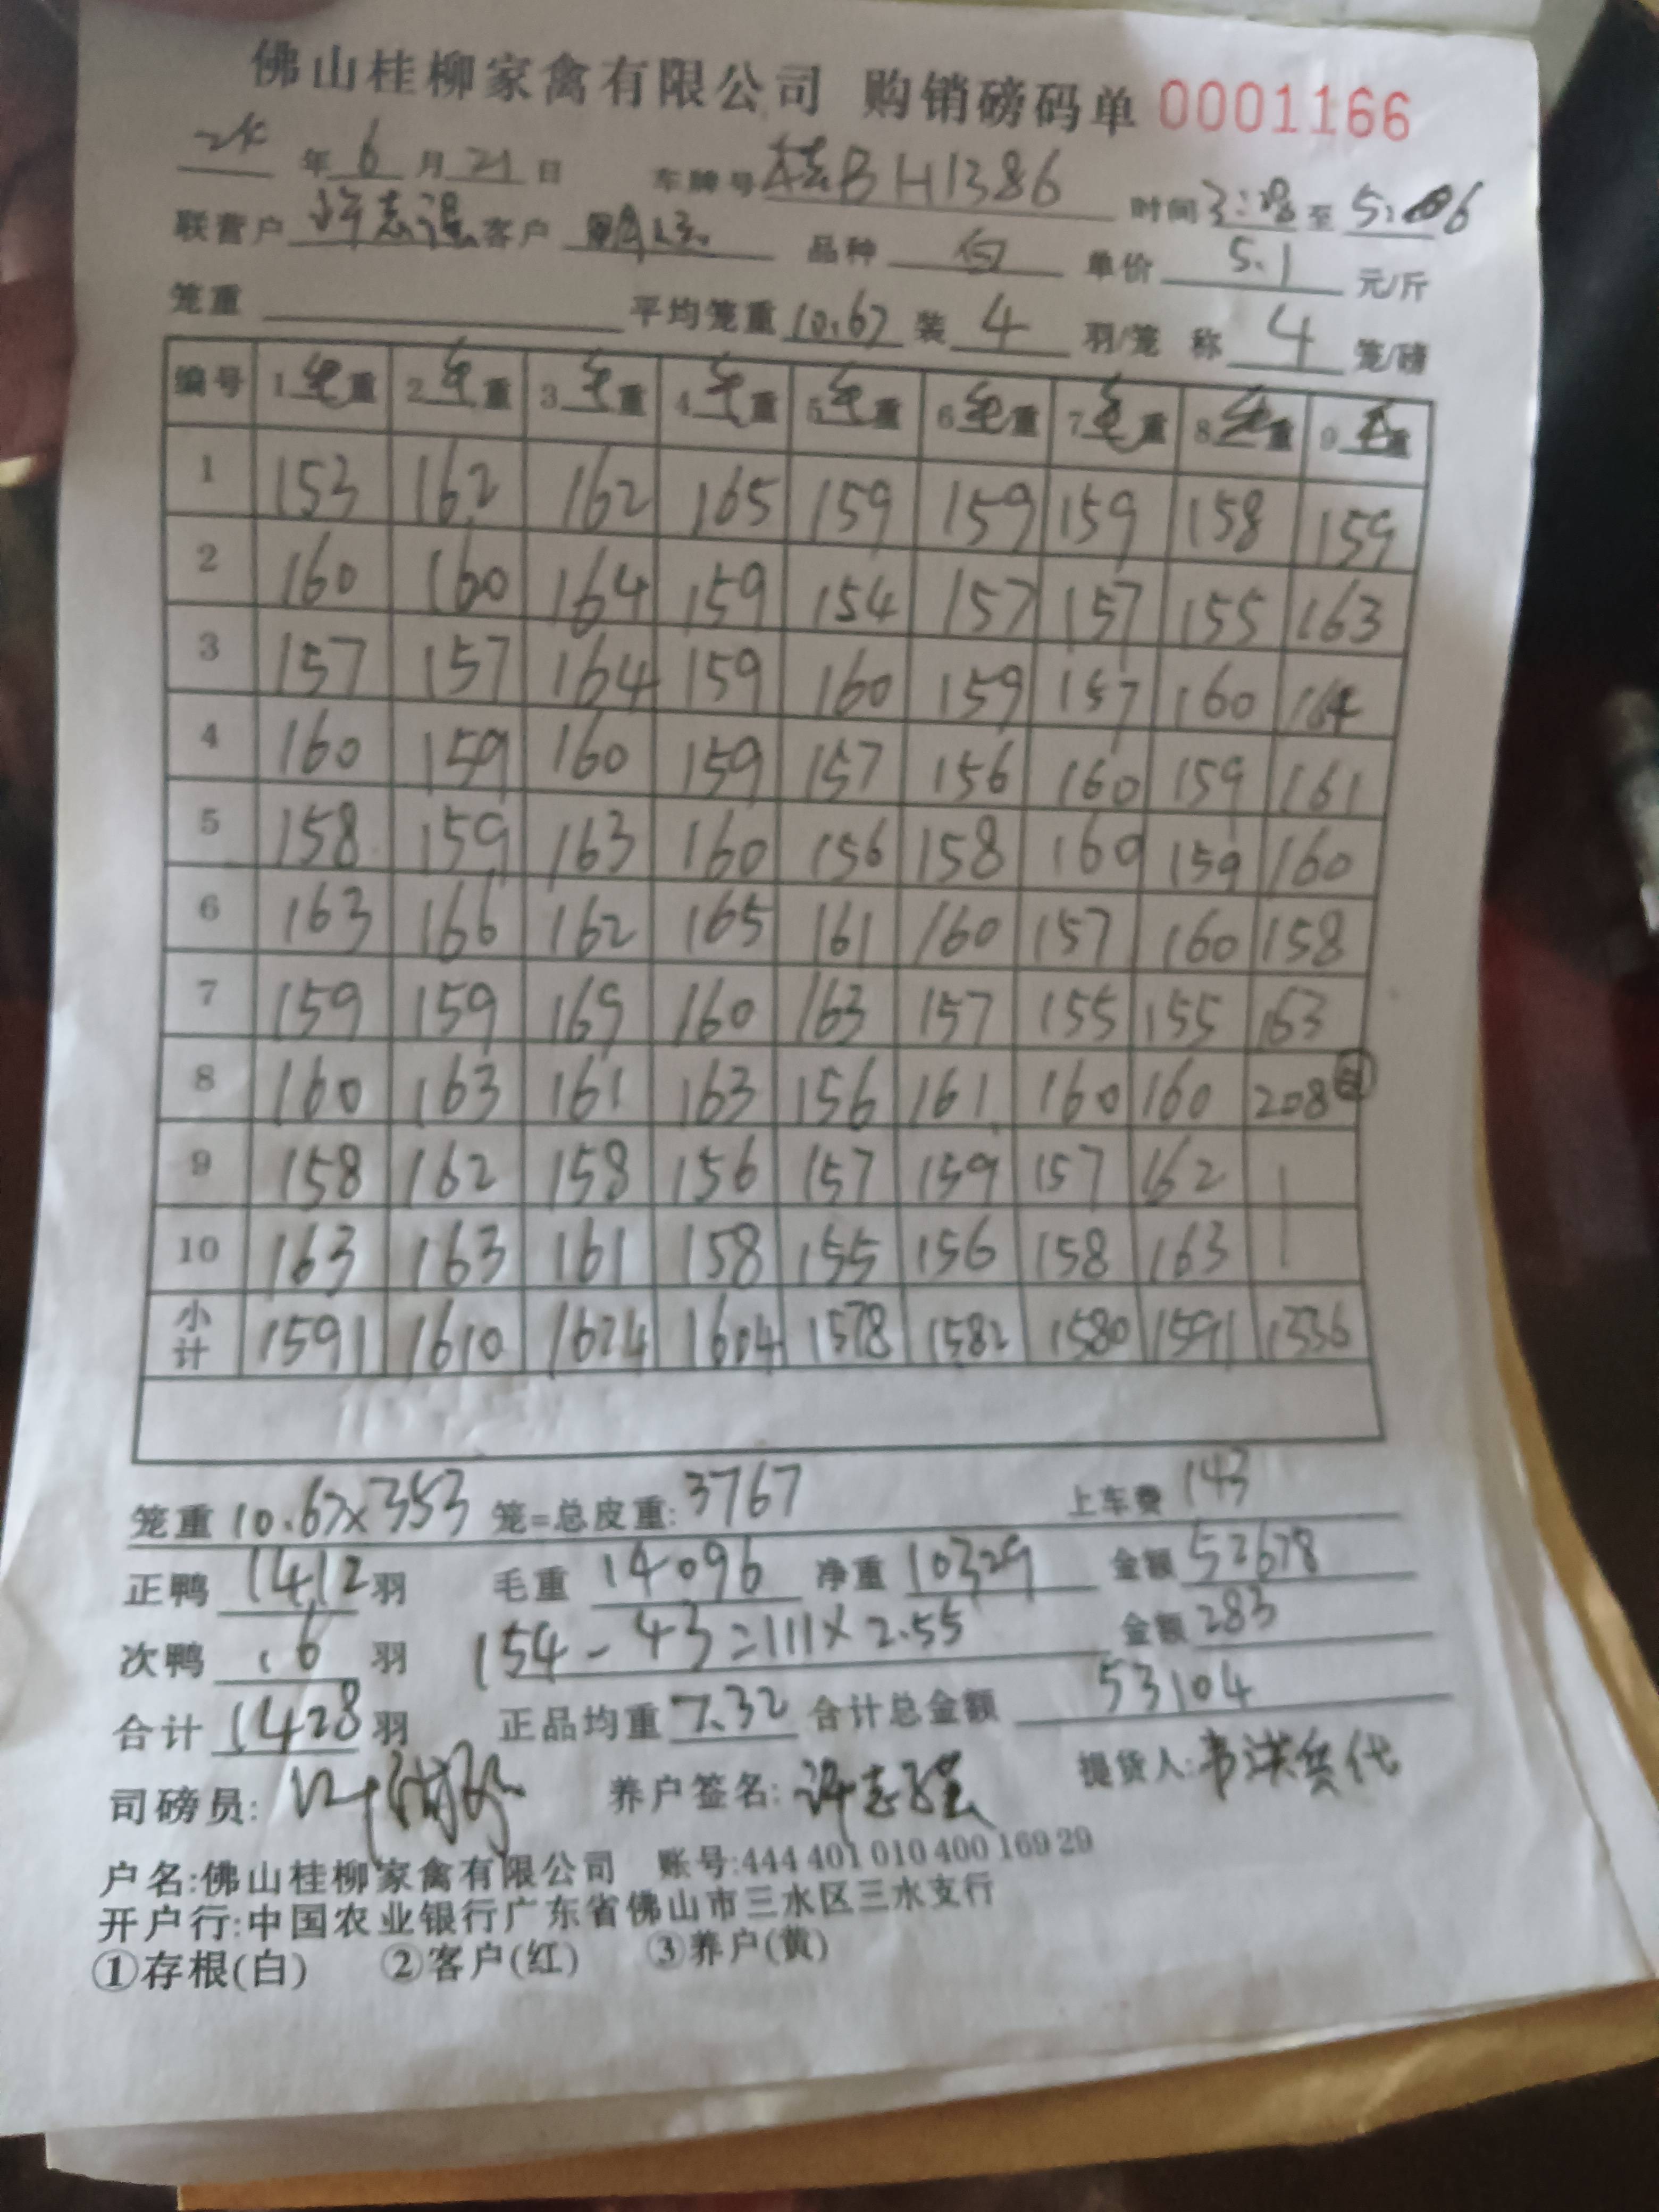 佛山桂柳家禽有限公司 购销磅码单 0001166
24 年 6 月 21 日 车牌号 桂BH1386 时间 至
联营户 许志强 客户 品种 白 单价 5.1 元/斤
笼重 平均笼重 10.67 装 4 羽/笼 称 4 笼/磅
编号 1 毛重 2 毛重 3 毛重 4 毛重 5 毛重 6 毛重 7 毛重 8 毛重 9 毛重
1 153 162 162 165 159 159 159 158 159
2 160 160 164 159 154 157 157 155 163
3 157 157 164 159 160 159 157 160 164
4 160 159 160 159 157 156 160 159 161
5 158 159 163 160 156 158 160 159 160
6 163 166 162 165 161 160 157 160 158
7 159 159 169 160 163 157 155 155 163
8 160 163 161 163 156 161 160 160 208
9 158 162 158 156 157 159 157 162
10 163 163 161 158 155 156 158 163
小计 1591 1610 1624 1604 1578 1582 1580 1591 1336
笼重 10.67×353 笼=总皮重: 3767 上车费 143
正鸭 1412 羽 毛重 14096 净重 10329 金额 52678
次鸭 16 羽 154-43=111×2.55 金额 283
合计 1428 羽 正品均重 7.32 合计总金额 53104
司磅员: 养户签名: 许志强 提货人: 韦洪兵代
户名:佛山桂柳家禽有限公司 账号:444 401 010 400 169 29
开户行:中国农业银行广东省佛山市三水区三水支行
①存根(白) ②客户(红) ③养户(黄)